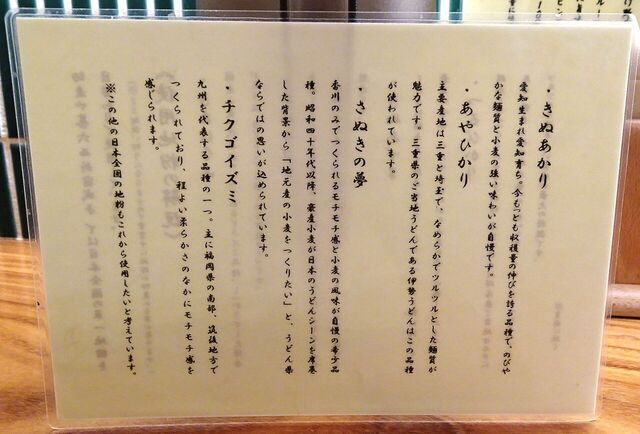 ・きぬあかり
愛知生まれ愛知育ち。今もっとも収穫量の伸びを誇る品種で、のびや
かな麺質と小麦の強い味わいが自慢です。
・あやひかり
主要産地は三重と埼玉で、なめらかでツルツルとした麺質が
魅力です。三重県のご当地うどんである伊勢うどんはこの品種
が使われています。
・さぬきの夢
香川のみでつくられるモチモチ感と小麦の風味が自慢の希少品
種。昭和四十年代以降、豪産小麦が日本のうどんシーンを席巻
した背景から「地元産の小麦をつくりたい」と、うどん県
ならではの思いが込められています。
・チクゴイズミ
九州を代表する品種の一つ。主に福岡県の南部、筑後地方で
つくられており、程よい柔らかさのなかにモチモチ感を
感じられます。
※この他の日本全国の地粉もこれから使用したいと考えています。